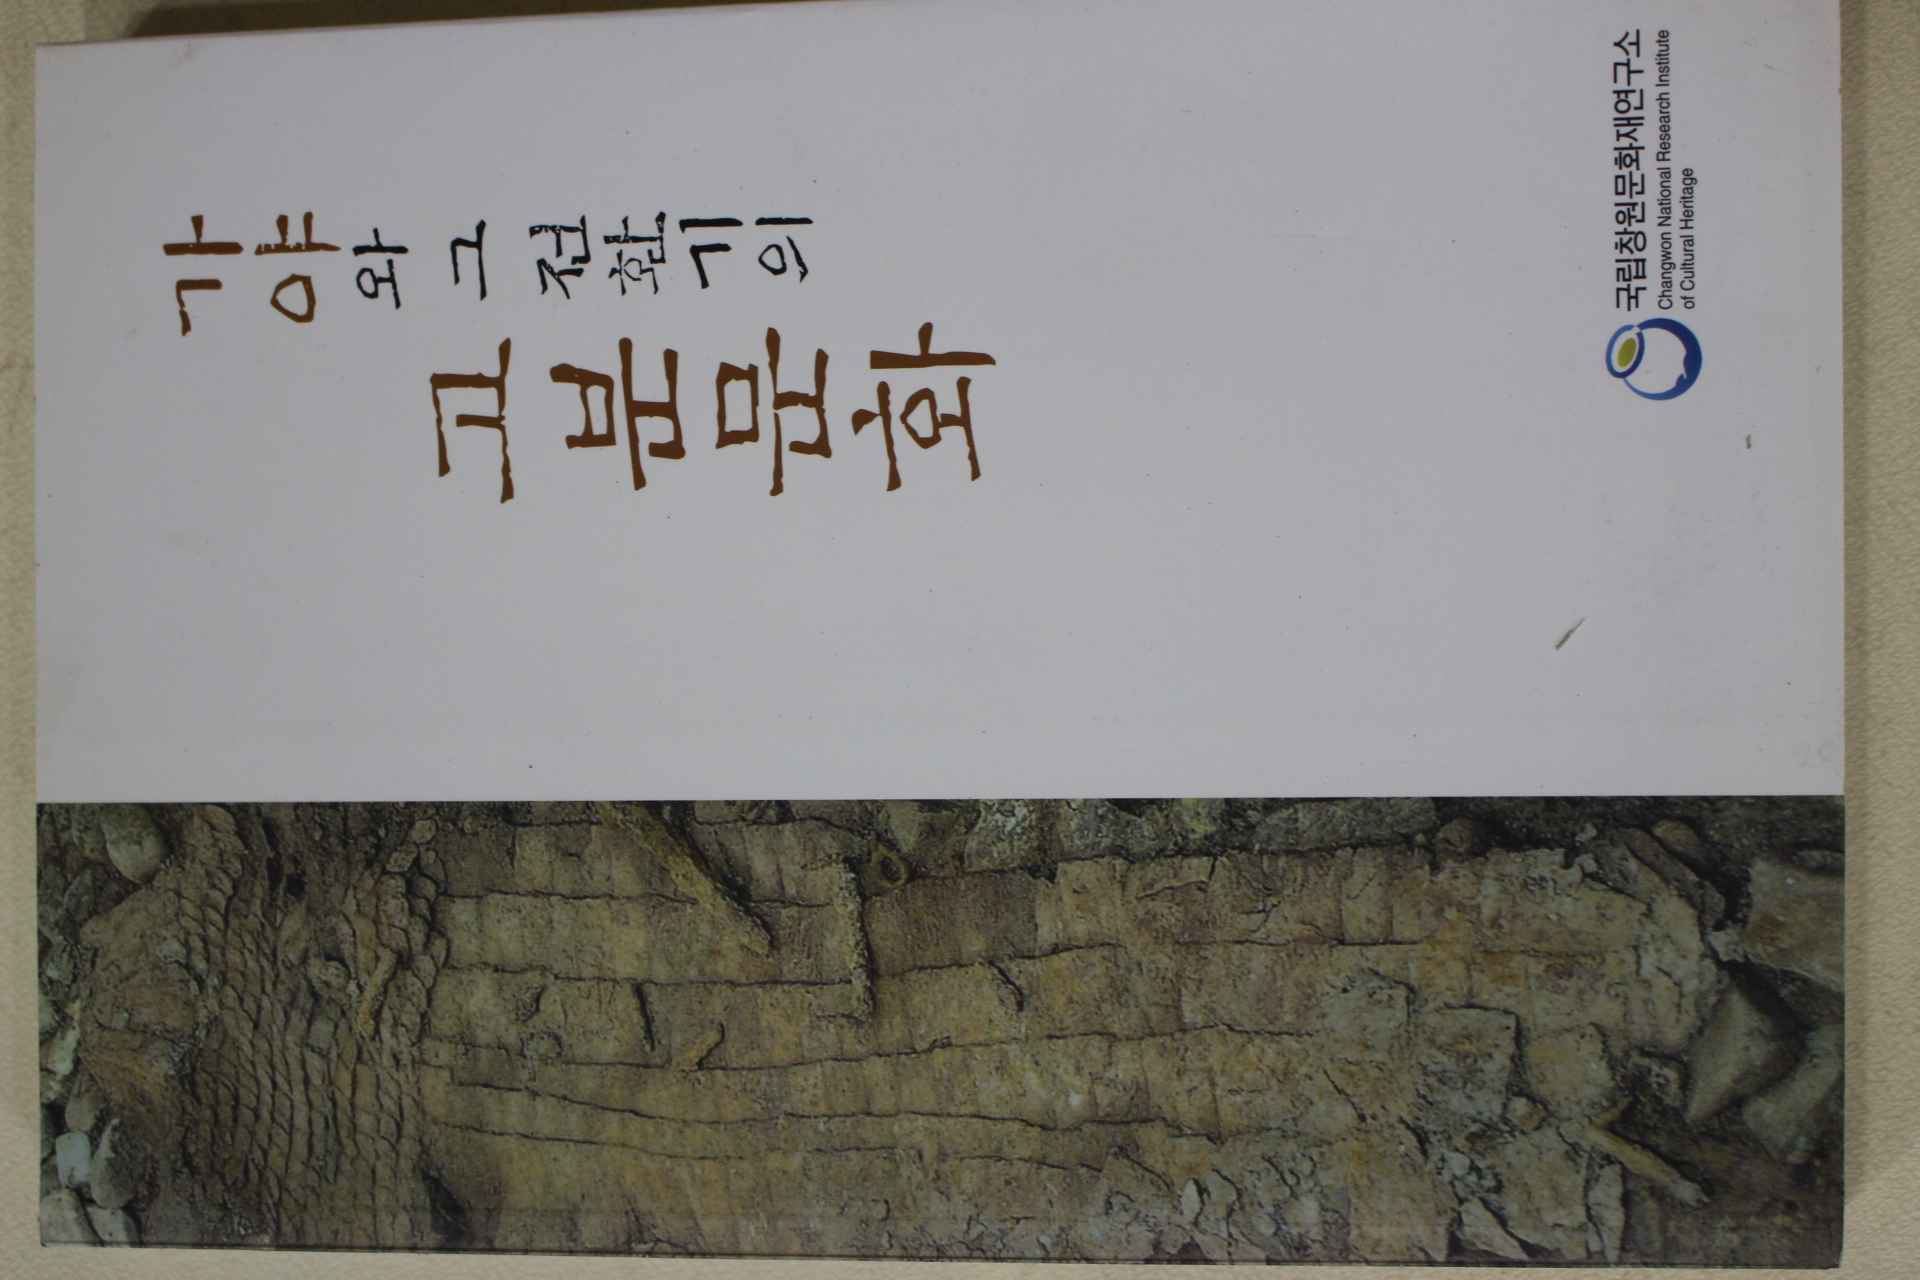 가야와 그 전환기의
고분문화
국립창원문화재연구소
Changwon National Research Institute
of Cultural Heritage